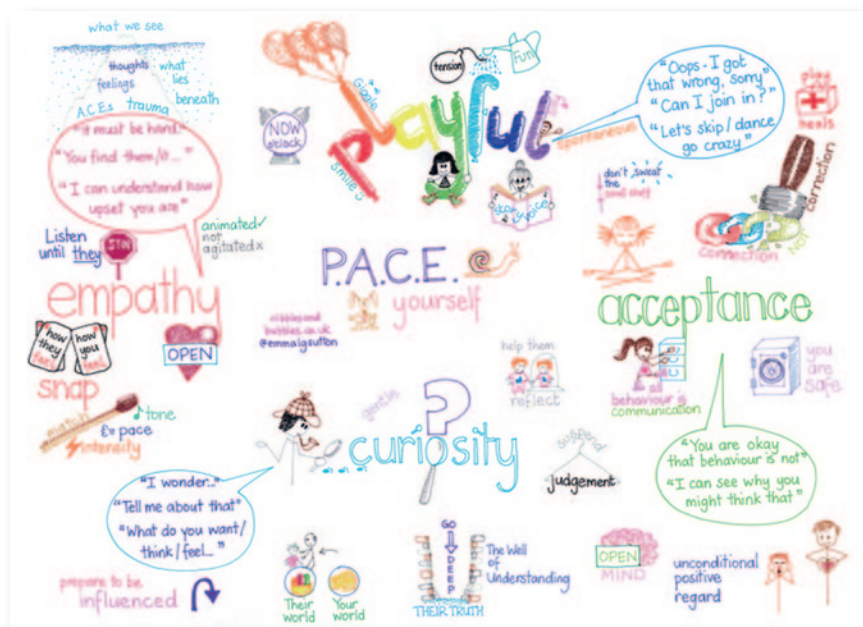 what we see
thoughts
feelings
what
lies
beneath
A.C.Es trauma
"It must be hard."
"You find them/it..."
"I can understand how
upset you are"
Listen
until they
STOP
animated ✓
not
agitated ×
empathy
how
they
feel
how
you
feel
OPEN
snap
match
tone
£= pace
intensity
NOW
o'clock
Giggle
tension
Fun
playful
smile
spontaneous
"Oops - I got
that wrong, sorry"
"Can I join in?"
"Let's skip/dance
go crazy"
play
heals
don't sweat
the
small stuff
correction
NOT
connection
P.A.C.E.
yourself
nibblesand
bubbles.co.uk
@emmalgsutton
acceptance
all
behaviour is
communication
you
are
safe
"You are okay
that behaviour is not"
"I can see why you
might think that"
help them
reflect
gentle
?
curiosity
suspend
judgement
"I wonder..."
"Tell me about that"
"What do you want/
think/feel..."
prepare to be
influenced
Their
world
Your
world
GO
DEEP
The Well
of
Understanding
THEIR TRUTH
OPEN
MIND
unconditional
positive
regard